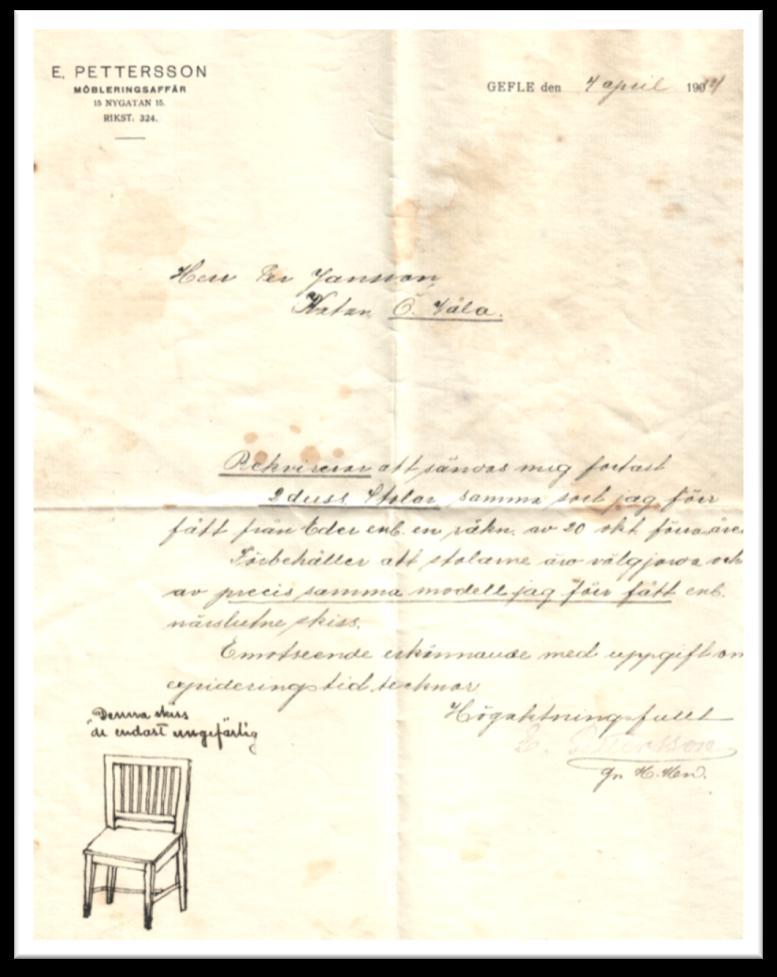 E. PETTERSSON
MÖBLERINGSAFFÄR
15 NYGATAN 15.
RIKST. 324.
GEFLE den 4 april 190
Herr Per Jansson,
Ö. Våla.
Rekvireras att sändas mig fortast
2 duss. Stolar samma sort jag förr
fått från Eder enl. en räkn. av 20 okt. förra åre
Förbehåller att stolarne äro välgjorda och
av precis samma modell jag förr fått enl.
närslutne skiss.
Emotseende erkännande med uppgift om
expideringstid tecknar
Högaktningsfullt
E. Pettersson
gn. H.
Denna skiss
är endast ungefärlig